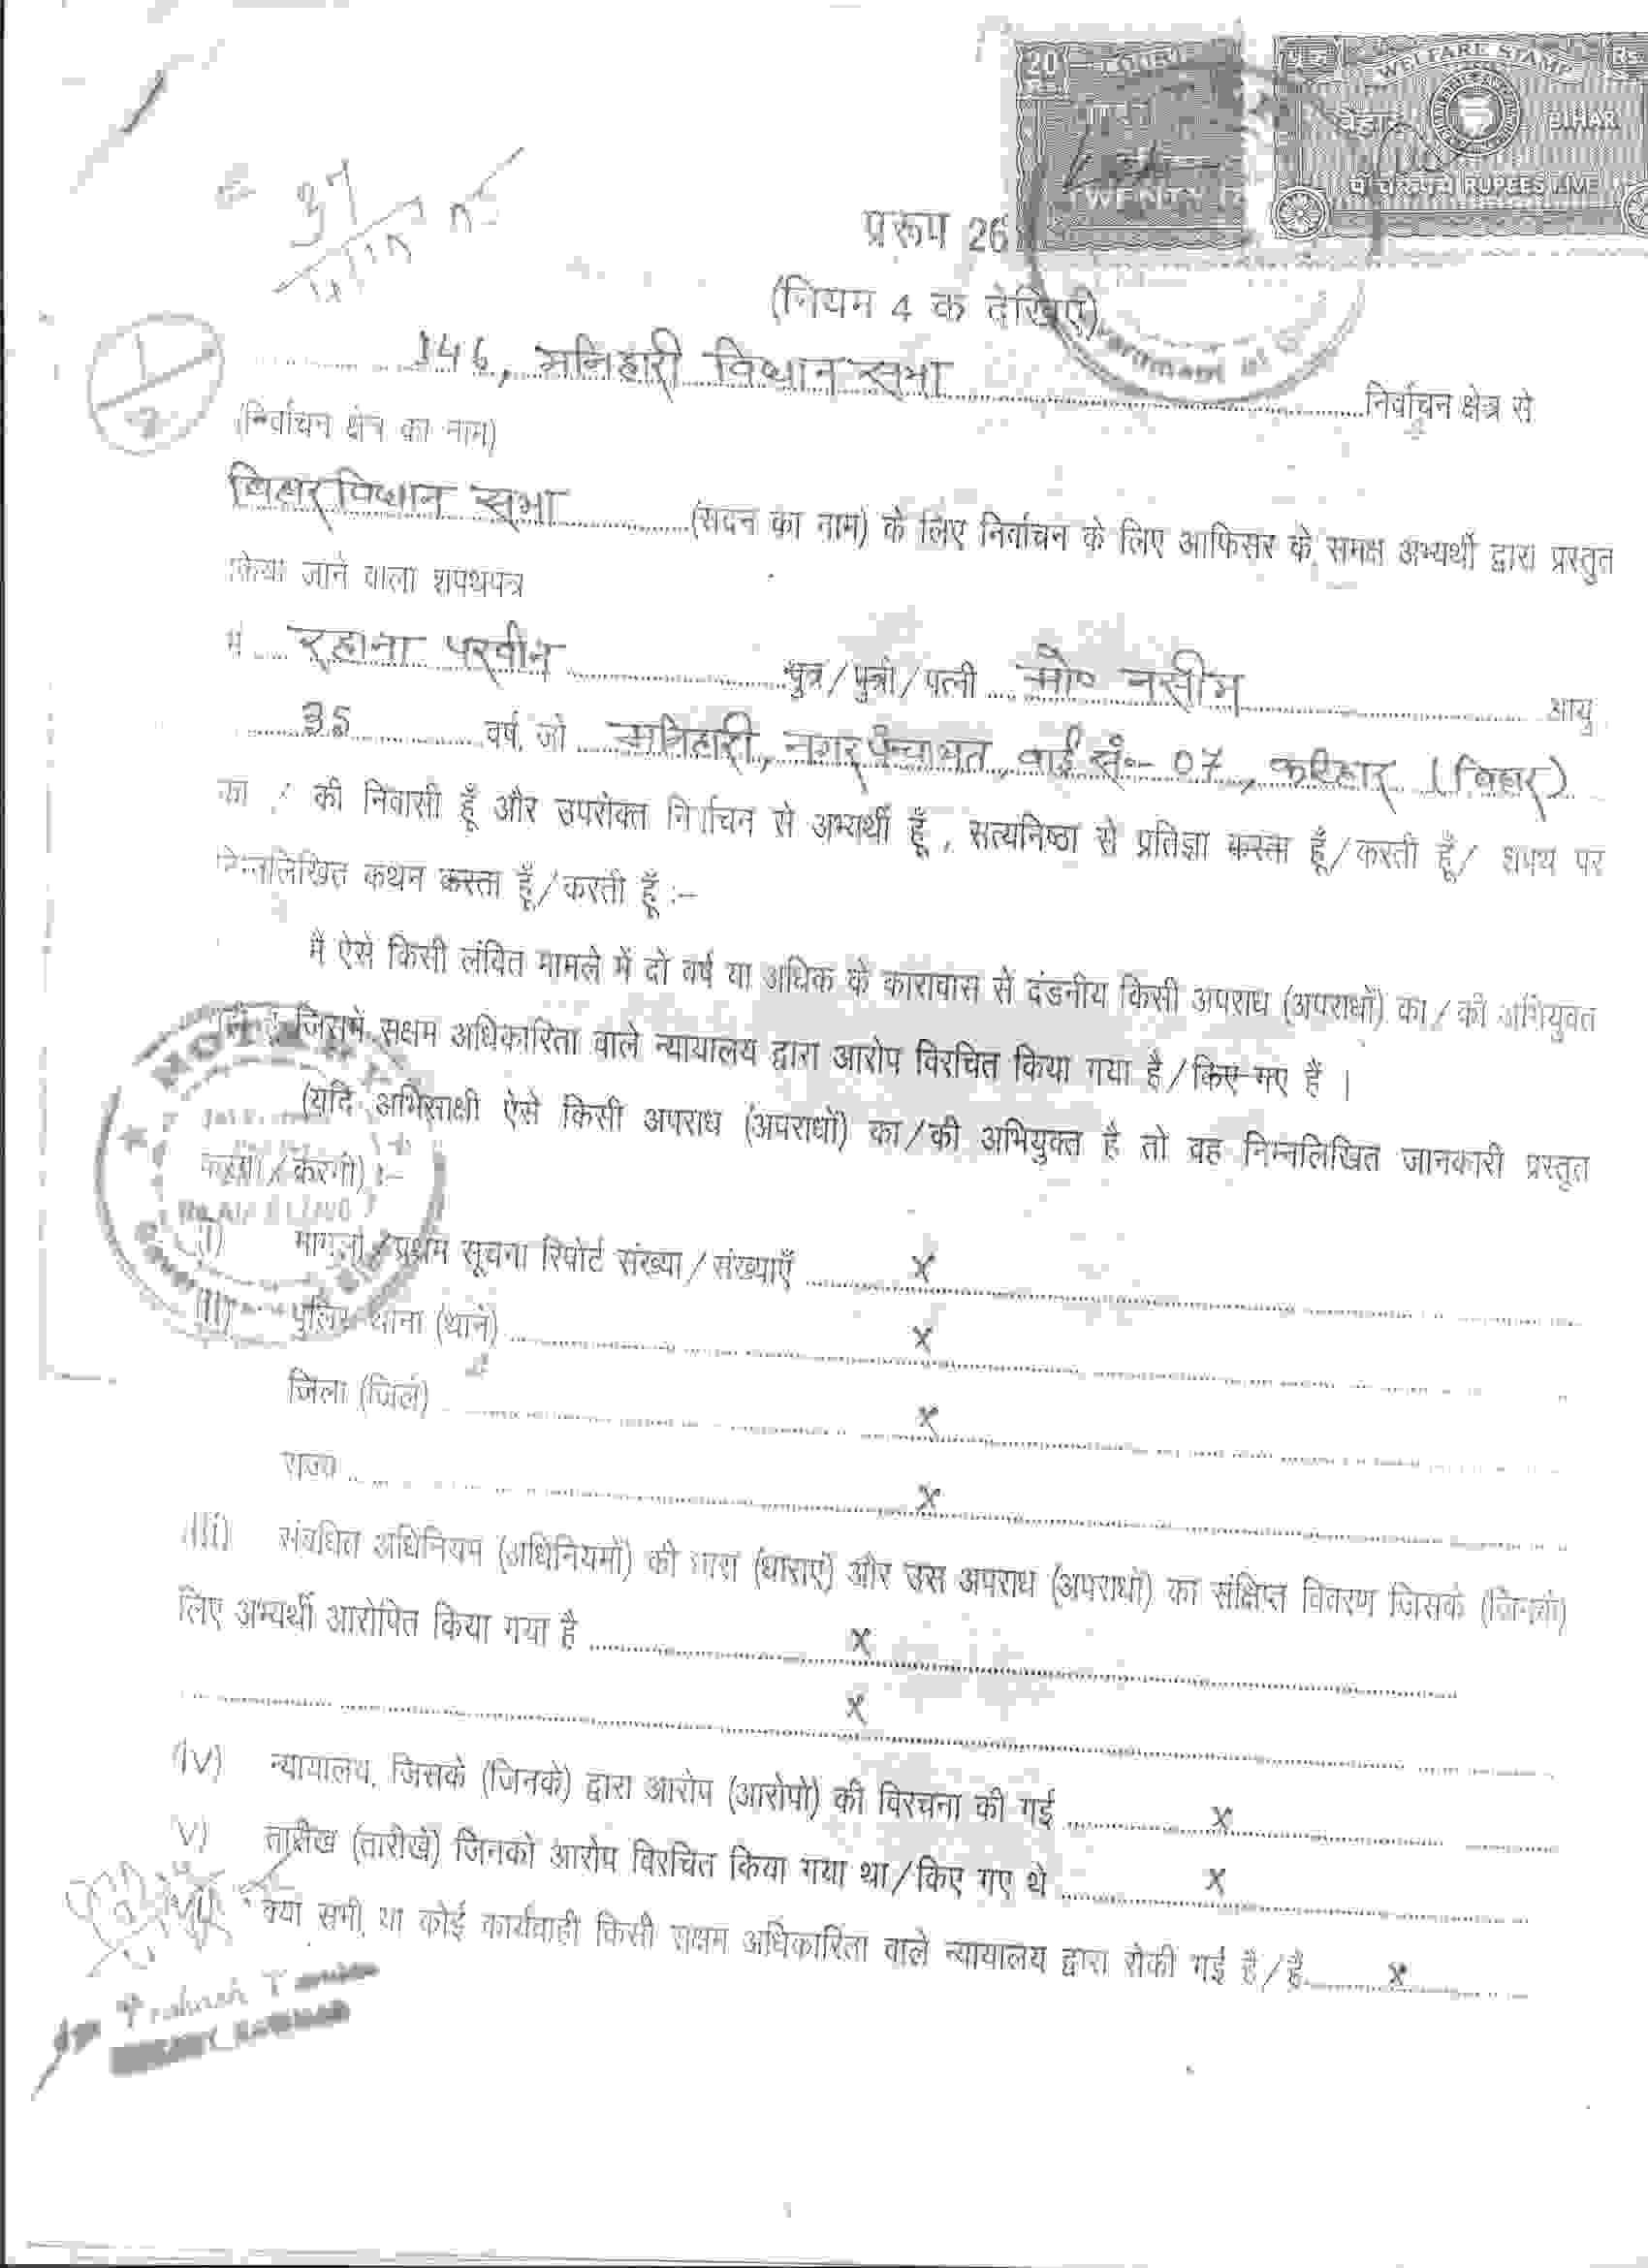 20
COURT
WELFARE STAMP
BIHAR
RUPEES FIVE
TWENTY
37
प्ररूप 26
(नियम 4 क देखिए)
146, मनिहारी विधान सभा निर्वाचन क्षेत्र से
(निर्वाचन क्षेत्र का नाम)
बिहार विधान सभा (सदन का नाम) के लिए निर्वाचन के लिए आफिसर के समक्ष अभ्यर्थी द्वारा प्रस्तुत
किया जाने वाला शपथपत्र
मैं रहाना परवीन पुत्र/पुत्री/पत्नी मो० नसीम आयु
35 वर्ष, जो मनिहारी, नगर पंचायत, वार्ड सं०- 07, कटिहार (बिहार)
का / की निवासी हूँ और उपरोक्त निर्वाचन से अभ्यर्थी हूँ, सत्यनिष्ठा से प्रतिज्ञा करता हूँ/करती हूँ/ शपथ पर
निम्नलिखित कथन करता हूँ/करती हूँ :-
मैं ऐसे किसी लंवित मामले में दो वर्ष या अधिक के कारावास से दंडनीय किसी अपराध (अपराधों) का/की अभियुक्त
जिसमें सक्षम अधिकारिता वाले न्यायालय द्वारा आरोप विरचित किया गया है/किए गए हैं |
(यदि अभिसाक्षी ऐसे किसी अपराध (अपराधों) का/की अभियुक्त है तो वह निम्नलिखित जानकारी प्रस्तुत
करेगा/करेगी) :-
NOTARY
(i) मामला/प्रथम सूचना रिपोर्ट संख्या/संख्याएँ x
(ii) पुलिस थाना (थाने) x
जिला (जिले) x
राज्य x
(iii) संबंधित अधिनियम (अधिनियमों) की धारा (धाराएं) और उस अपराध (अपराधों) का संक्षिप्त विवरण जिसके (जिनके)
लिए अभ्यर्थी आरोपित किया गया है x
x
(iv) न्यायालय, जिसके (जिनके) द्वारा आरोप (आरोपों) की विरचना की गई x
v) तारीख (तारीखें) जिनको आरोप विरचित किया गया था/किए गए थे x
vi) क्या सभी या कोई कार्यवाही किसी सक्षम अधिकारिता वाले न्यायालय द्वारा रोकी गई है/हैं x
Prakash
1